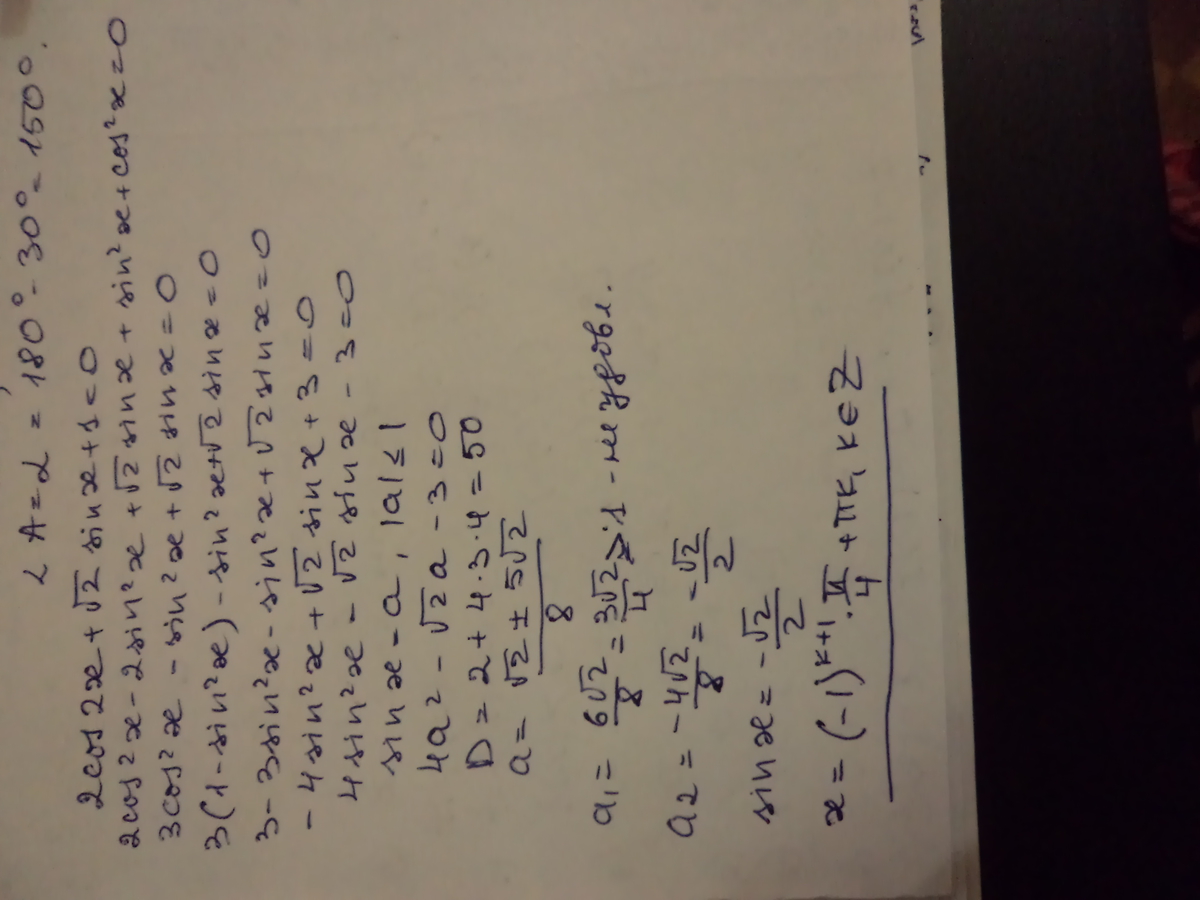 ∠A = α = 180° - 30° = 150°.
2cos2x + √2 sinx + 1 = 0
2cos²x - 2sin²x + √2 sinx + sin²x + cos²x = 0
3cos²x - sin²x + √2 sinx = 0
3(1 - sin²x) - sin²x + √2 sinx = 0
3 - 3sin²x - sin²x + √2 sinx = 0
- 4sin²x + √2 sinx + 3 = 0
4sin²x - √2 sinx - 3 = 0
sinx = a, |a| ≤ 1
4a² - √2 a - 3 = 0
D = 2 + 4·3·4 = 50
a = (√2 ± 5√2)/8
a₁ = 6√2/8 = 3√2/4 > 1 - не удовл.
a₂ = -4√2/8 = -√2/2
sinx = -√2/2
x = (-1)^(k+1) · π/4 + πk, k ∈ Z